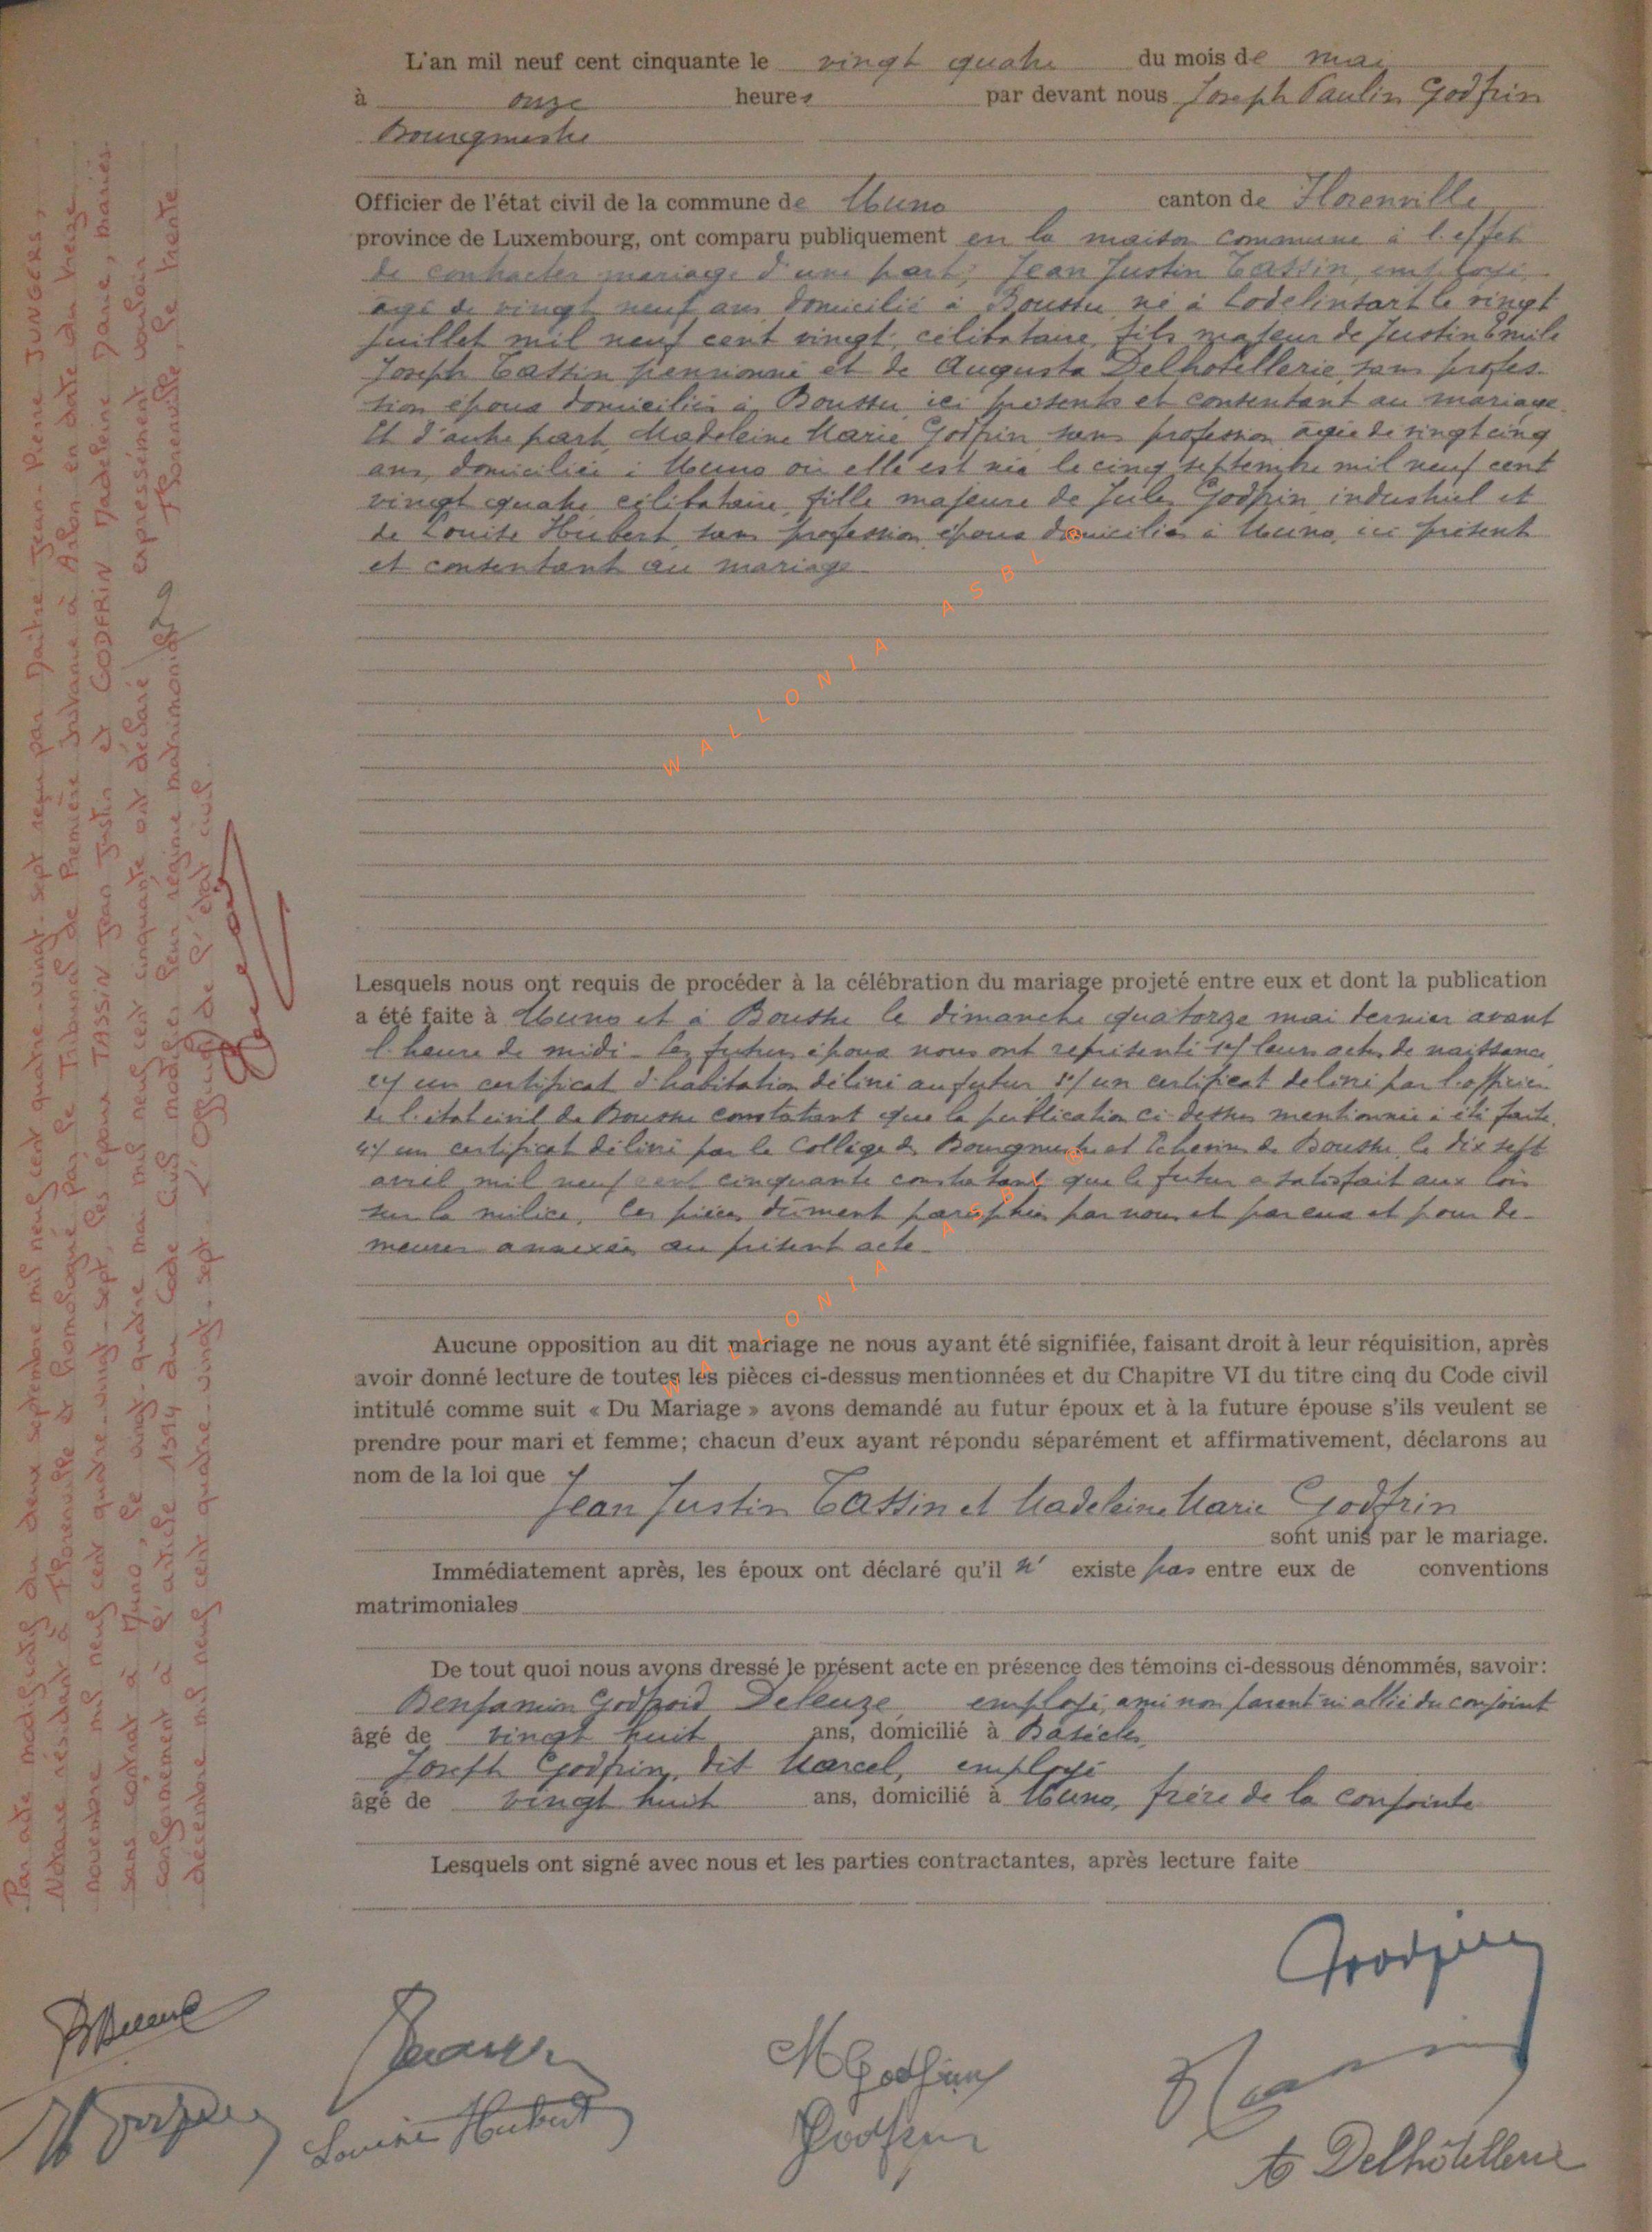 L'an mil neuf cent cinquante le vingt quatre du mois de mai
à onze heures par devant nous Joseph Paulin Godfrin
Bourgmestre
Officier de l'état civil de la commune de Muno canton de Florenville
province de Luxembourg, ont comparu publiquement en la maison commune à l'effet
de contracter mariage d'une part, Jean Justin Tassin, employé
âgé de vingt neuf ans domicilié à Boussu né à Lodelinsart le vingt
juillet mil neuf cent vingt, célibataire, fils majeur de Justin Emile
Joseph Tassin pensionné et de Augusta Delhotellerie, sans profes-
sion époux domiciliés à Boussu ici présents et consentant au mariage.
Et d'autre part, Madeleine Marie Godfrin sans profession âgée de vingt cinq
ans, domiciliée à Muno où elle est née le cinq septembre mil neuf cent
vingt quatre célibataire, fille majeure de Jules Godfrin industriel et
de Louise Hubert, sans profession, époux domiciliés à Muno, ici présent
et consentant au mariage
Lesquels nous ont requis de procéder à la célébration du mariage projeté entre eux et dont la publication
a été faite à Muno et à Boussu le dimanche quatorze mai dernier avant
l'heure de midi - les futurs époux nous ont représenté 1°/ leurs actes de naissance
2°/ un certificat d'habitation délivré au futur 3°/ un certificat délivré par l'officier
de l'état civil de Boussu constatant que la publication ci-dessus mentionnée a été faite,
4°/ un certificat délivré par le Collège des Bourgmestre et Echevins de Boussu, le dix sept
avril mil neuf cent cinquante constatant que le futur a satisfait aux lois
sur la milice, les pièces dûment paraphées par nous et par eux et pour de-
meurer annexées au présent acte.
Aucune opposition au dit mariage ne nous ayant été signifiée, faisant droit à leur réquisition, après
avoir donné lecture de toutes les pièces ci-dessus mentionnées et du Chapitre VI du titre cinq du Code civil
intitulé comme suit « Du Mariage » avons demandé au futur époux et à la future épouse s'ils veulent se
prendre pour mari et femme; chacun d'eux ayant répondu séparément et affirmativement, déclarons au
nom de la loi que
Jean Justin Tassin et Madeleine Marie Godfrin
sont unis par le mariage.
Immédiatement après, les époux ont déclaré qu'il n' existe pas entre eux de conventions
matrimoniales
De tout quoi nous avons dressé le présent acte en présence des témoins ci-dessous dénommés, savoir:
Benjamin Godfroid Deleuze, employé, ami non parent ni allié du conjoint
âgé de vingt huit ans, domicilié à Basècles,
Joseph Godfrin, dit Marcel, employé
âgé de vingt huit ans, domicilié à Muno, frère de la conjointe
Lesquels ont signé avec nous et les parties contractantes, après lecture faite
Godfrin
M Godfrin
Louise Hubert
Godfrin
A Delhôtellerie
Par acte modificatif du deux septembre mil neuf cent quatre-vingt-sept reçu par Maître Jean-Pierre JUNGERS,
Notaire résidant à Florenville et homologué par le Tribunal de Première Instance à Arlon en date du treize
novembre mil neuf cent quatre-vingt-sept, les époux TASSIN Jean Justin et GODFRIN Madeleine Marie, mariés
sans contrat à Muno, le vingt-quatre mai mil neuf cent cinquante ont déclaré expressément vouloir
conformément à l'article 1394 du Code Civil modifier leur régime matrimonial Florenville, le trente
décembre mil neuf cent quatre-vingt-sept. L'Officier de l'état civil.
WALLONIA ASBL ®
WALLONIA ASBL ®